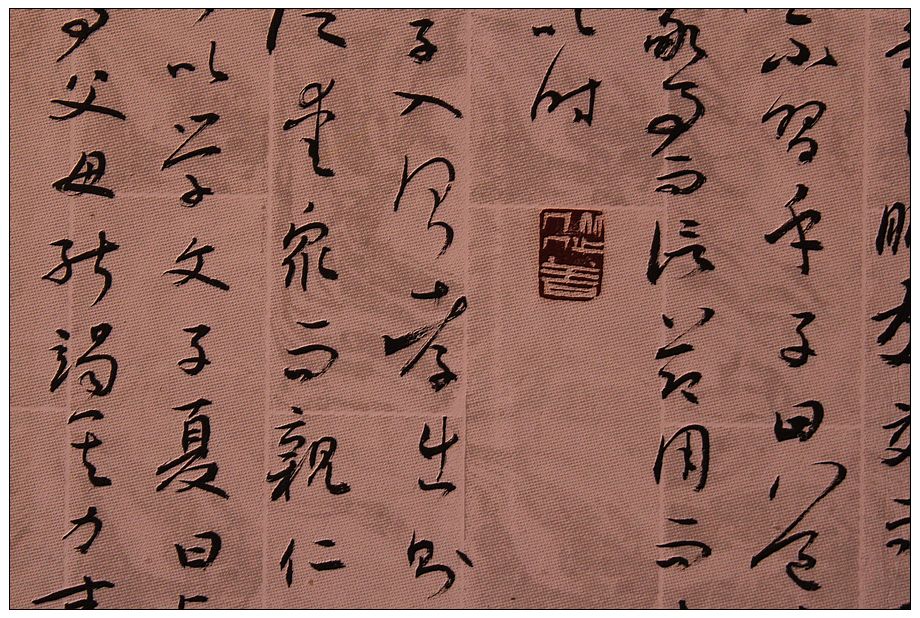 朋友交而
不習乎子曰道
敬事而信節用而
以時
子入則孝出則
愛眾而親仁
以學文子夏曰
事父母能竭其力